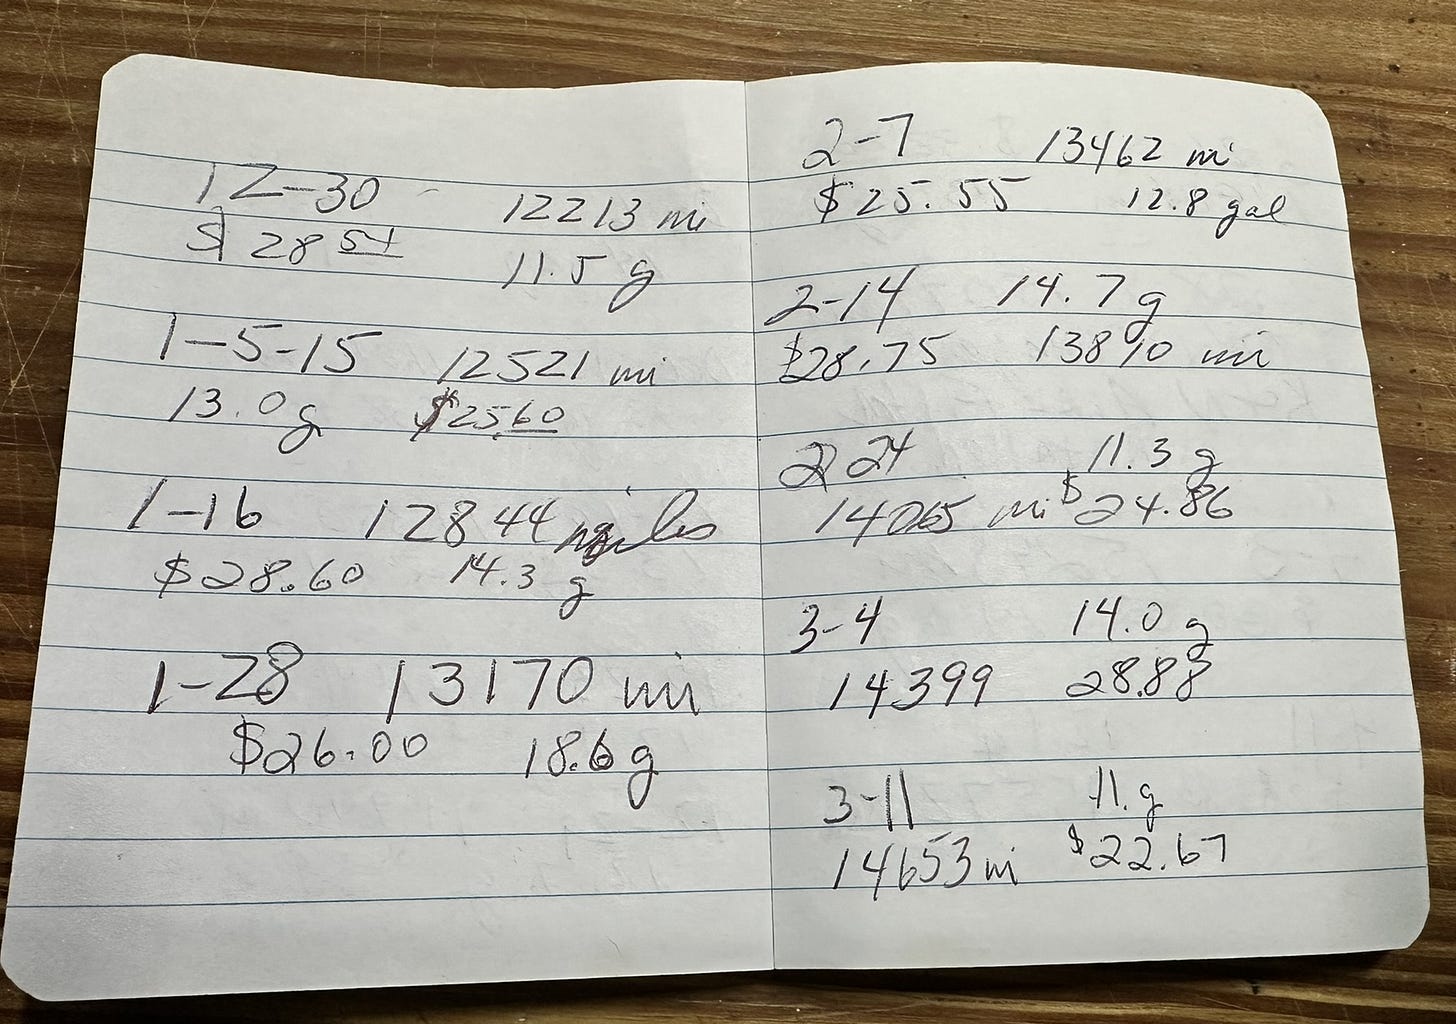 12-30 12213 mi
$28 54 11.5 g
1-5-15 12521 mi
13.0 g $25.60
1-16 12844 miles
$28.60 14.3 g
1-28 13170 mi
$26.00 18.6 g
2-7 13462 mi
$25.55 12.8 gal
2-14 14.7 g
$28.75 13810 mi
2 24 11.3 g
14065 mi $24.86
3-4 14.0 g
14399 28.88
3-11 11. g
14653 mi $22.67